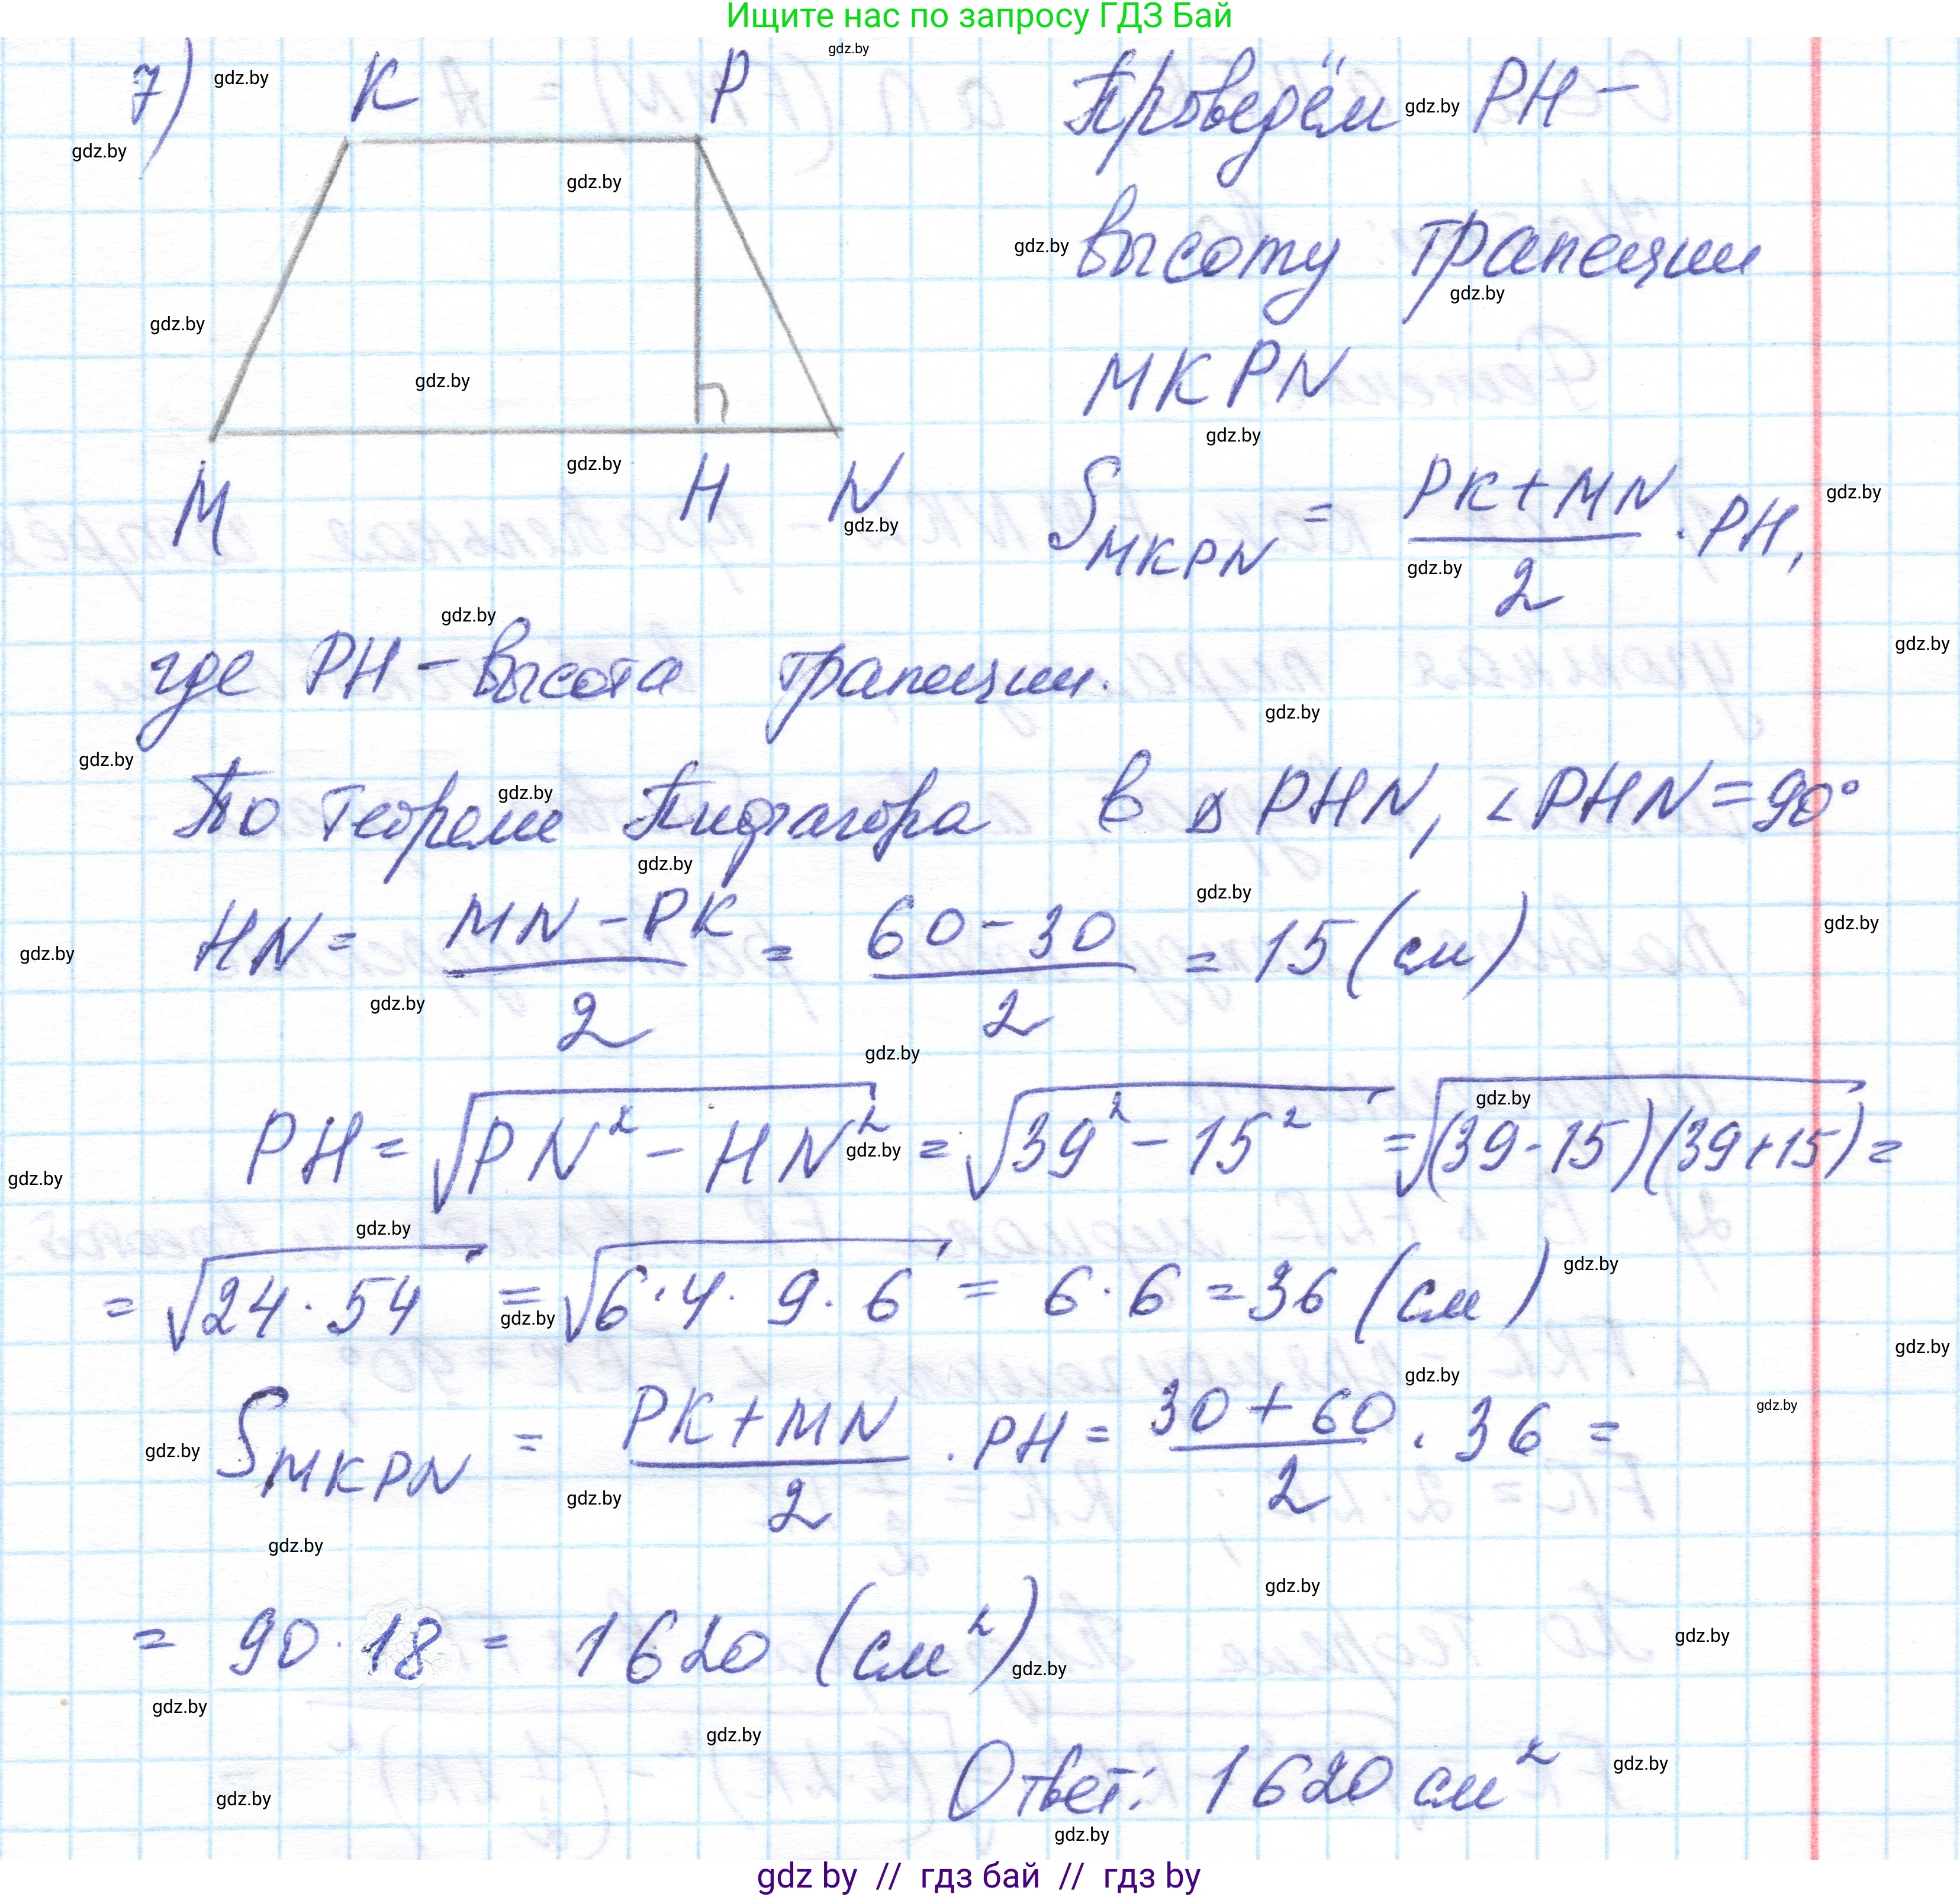 Ищите нас по запросу ГДЗ Бай
7)
K P
M H N
Проведём PH –
высоту трапеции
MKPN
S_MKPN = (PK + MN)/2 · PH,
где PH – высота трапеции.
По теореме Пифагора в △ PHN, ∠PHN = 90°
HN = (MN – PK)/2 = (60 – 30)/2 = 15 (см)
PH = √(PN² – HN²) = √(39² – 15²) = √((39 - 15)(39 + 15)) =
= √(24 · 54) = √(6 · 4 · 9 · 6) = 6 · 6 = 36 (см)
S_MKPN = (PK + MN)/2 · PH = (30 + 60)/2 · 36 =
= 90 · 18 = 1620 (см²)
Ответ: 1620 см²
gdz by // гдз бай // гдз by
gdz.by